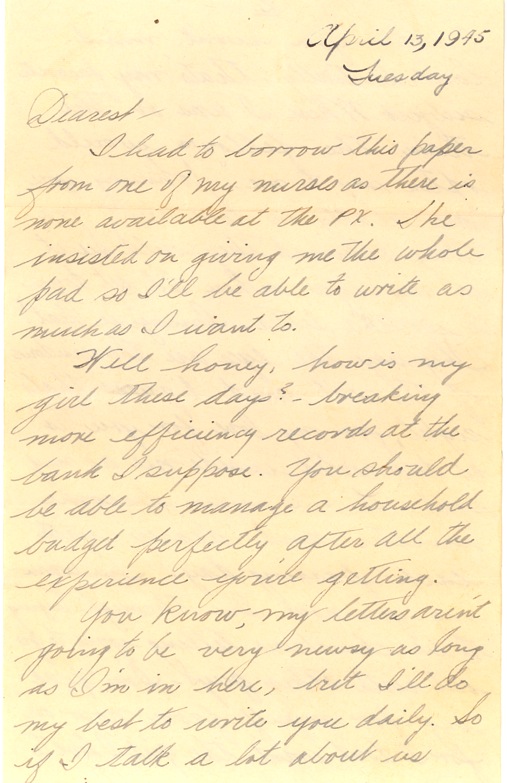 April 13, 1945
Tuesday
Dearest -
I had to borrow this paper
from one of my nurses as there is
none available at the PX. She
insisted on giving me the whole
pad so I'll be able to write as
much as I want to.
Well honey, how is my
girl these days? - breaking
more efficiency records at the
bank I suppose. You should
be able to manage a household
budget perfectly after all the
experience you're getting.
You know, my letters aren't
going to be very newsy as long
as I'm in here, but I'll do
my best to write you daily. So
if I talk a lot about us